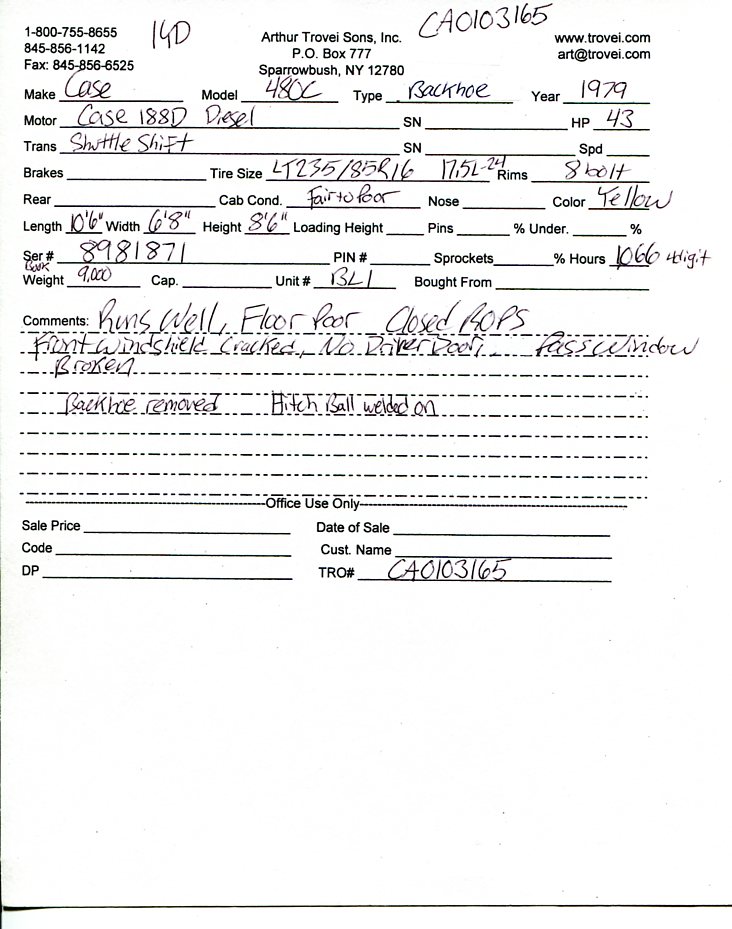 1-800-755-8655 14D Arthur Trovei Sons, Inc. CA0103165 www.trovei.com
845-856-1142 P.O. Box 777 art@trovei.com
Fax: 845-856-6525 Sparrowbush, NY 12780
Make Case Model 480C Type Backhoe Year 1979
Motor Case 188D Diesel SN HP 43
Trans Shuttle Shift SN Spd
Brakes Tire Size LT235/85R16 17.5L-24 Rims 8 bolt
Rear Cab Cond. Fair to Poor Nose Color Yellow
Length 10'6" Width 6'8" Height 8'6" Loading Height Pins % Under. %
Ser # 8981871 PIN # Sprockets % Hours 1066 4 digit
Book Weight 9,000 Cap. Unit # BL1 Bought From
Comments: Runs Well, Floor Poor Closed ROPS
Front Windshield Cracked, No Driver Door, Pass Window
Broken
Backhoe removed Hitch Ball welded on
Office Use Only
Sale Price Date of Sale
Code Cust. Name
DP TRO# CA0103165